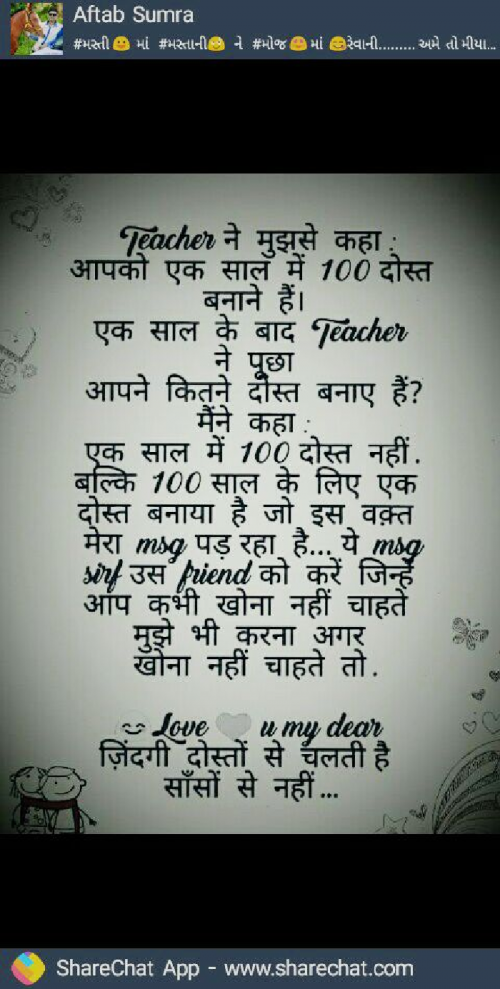 Aftab Sumra
#મસ્તી માં #મસ્તાની ને #મોજ માં રેવાની......... અમે તો મીયા...
Teacher ने मुझसे कहा :
आपको एक साल में 100 दोस्त
बनाने हैं।
एक साल के बाद Teacher
ने पूछा
आपने कितने दोस्त बनाए हैं?
मैंने कहा :
एक साल में 100 दोस्त नहीं.
बल्कि 100 साल के लिए एक
दोस्त बनाया है जो इस वक़्त
मेरा msg पड़ रहा है... ये msg
sirf उस friend को करें जिन्हें
आप कभी खोना नहीं चाहते
मुझे भी करना अगर
खोना नहीं चाहते तो.
Love u my dear
ज़िंदगी दोस्तों से चलती है
साँसों से नहीं...
ShareChat App - www.sharechat.com